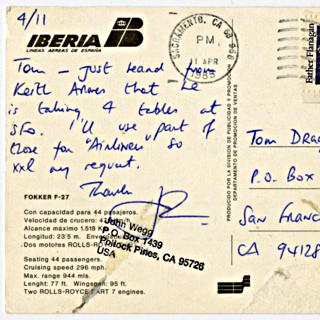 4/11
IBERIA
LINEAS AEREAS DE ESPAÑA
Tom – just heard from
Keith Armes that he
is taking 4 tables at
SFO. I'll use part of
those for "Airliners" so
xxl my request.
Thanks
SACRAMENTO, CA
PM
11 APR
1988
Father Flanagan
PRODUCIDO POR LA DIVISION DE PUBLICIDAD Y PROMOCION
DEPARTAMENTO DE PROMOCION DE VENTAS
Tom Drag
P.O. Box
San Franc
CA 94128
FOKKER F-27
Con capacidad para 44 pasajeros.
Velocidad de crucero:
Alcance máximo 1.518
Longitud: 23'5 m. Enver
Dos motores ROLLS-R
Seating 44 passengers.
Cruising speed 296 mph.
Max. range 944 mls.
Lenght: 77 ft. Wingspan: 95 ft.
Two ROLLS-ROYCE DART 7 engines.
John Wegg
P.O. Box 1439
Pollock Pines, CA 95726
USA